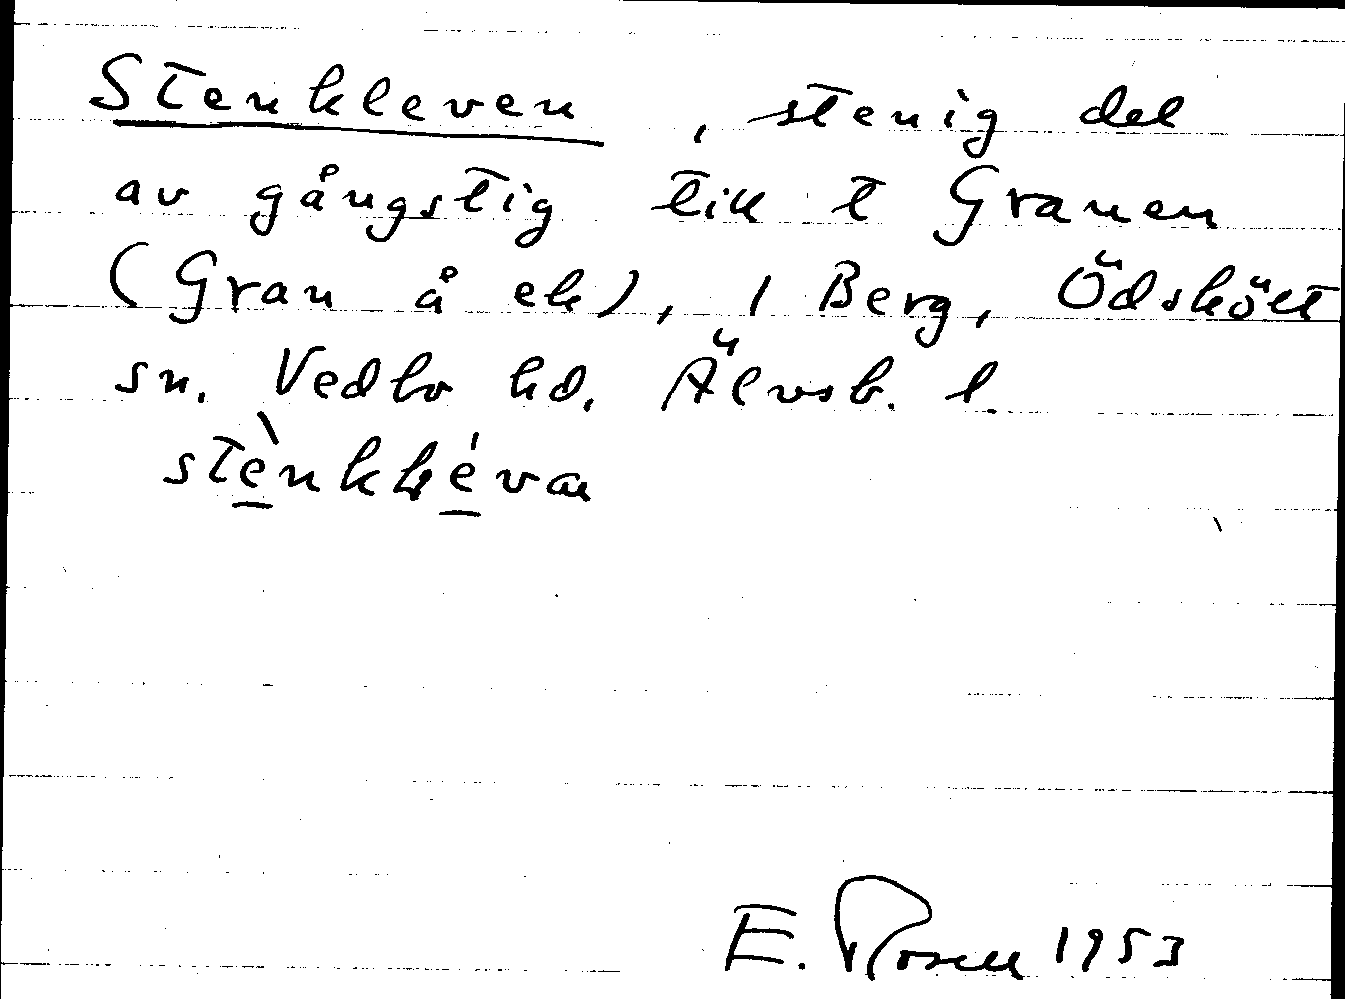 Stenkleven, stenig del
av gångstig till t Granen
(Gran å ek), 1 Berg, Ödskölt
sn. Vedbo hd. Älvsb. l.
E. Rosell 1953